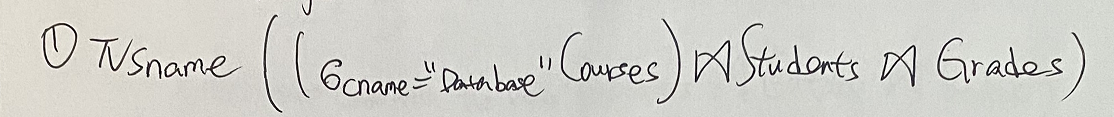 ① πsname ((σcname="Database" Courses) ⋈ Students ⋈ Grades)